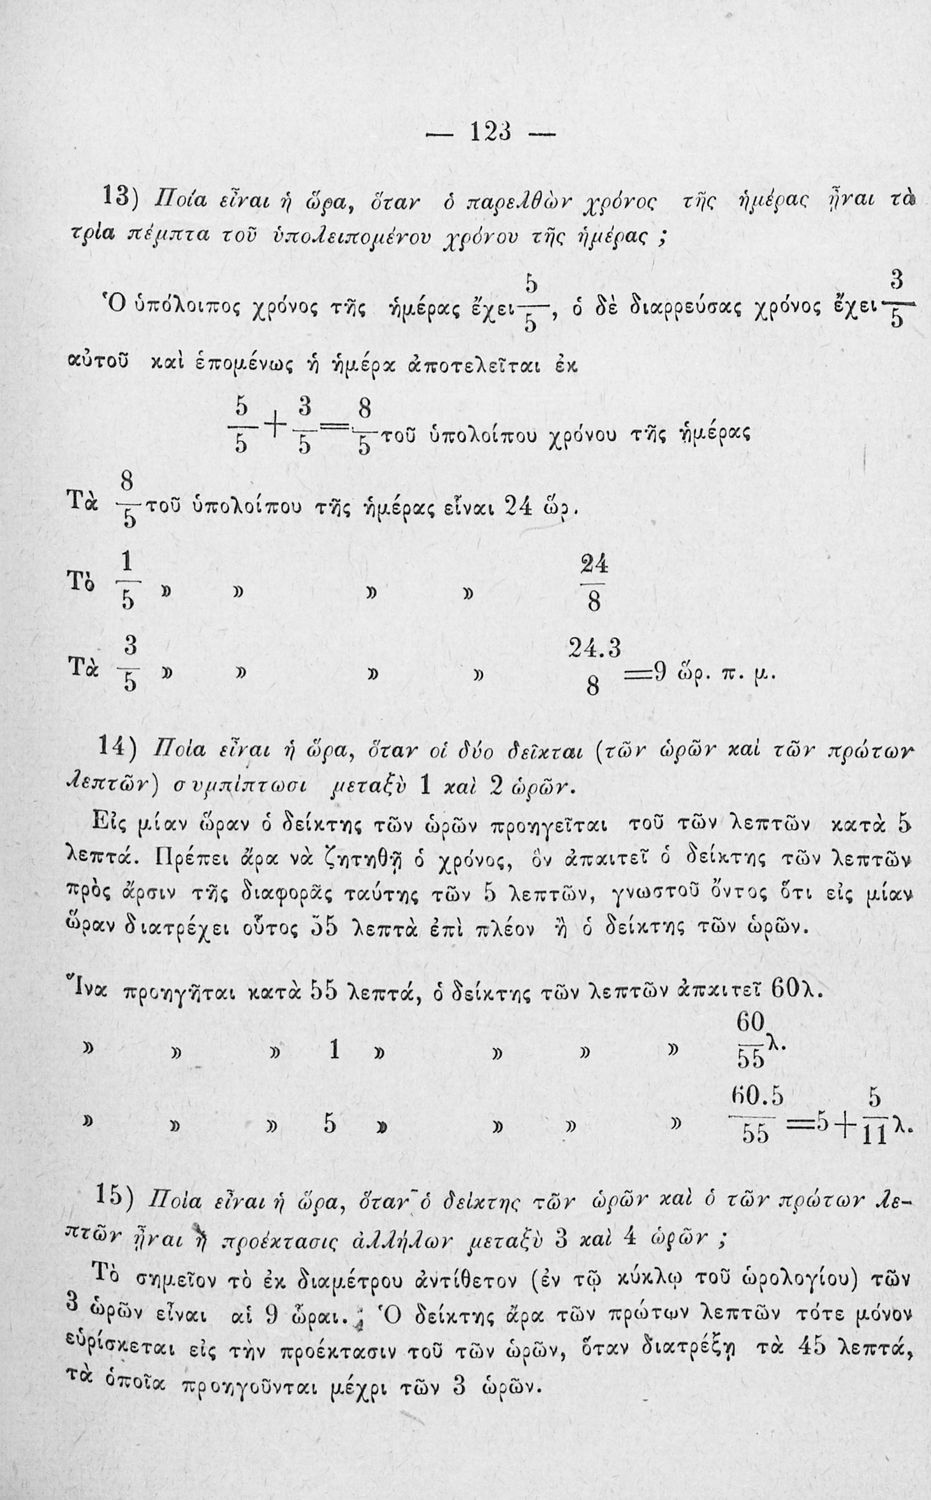 — 123 —
13) Ποία εἶναι ἡ ὥρα, ὅταν ὁ παρελθὼν χρόνος τῆς ἡμέρας ᾖναι τὰ
τρία πέμπτα τοῦ ὑπολειπομένου χρόνου τῆς ἡμέρας ;
Ὁ ὑπόλοιπος χρόνος τῆς ἡμέρας ἔχει 5/5, ὁ δὲ διαρρεύσας χρόνος ἔχει 3/5
αὐτοῦ καὶ ἑπομένως ἡ ἡμέρα ἀποτελεῖται ἐκ
5/5 + 3/5 = 8/5 τοῦ ὑπολοίπου χρόνου τῆς ἡμέρας
Τὰ 8/5 τοῦ ὑπολοίπου τῆς ἡμέρας εἶναι 24 ὥρ.
Τὸ 1/5 » » » » 24/8
Τὰ 3/5 » » » » 24.3/8 =9 ὥρ. π. μ.
14) Ποία εἶναι ἡ ὥρα, ὅταν οἱ δύο δεῖκται (τῶν ὡρῶν καὶ τῶν πρώτων
λεπτῶν) συμπίπτωσι μεταξὺ 1 καὶ 2 ὡρῶν.
Εἰς μίαν ὥραν ὁ δείκτης τῶν ὡρῶν προηγεῖται τοῦ τῶν λεπτῶν κατὰ 5
λεπτά. Πρέπει ἄρα νὰ ζητηθῇ ὁ χρόνος, ὃν ἀπαιτεῖ ὁ δείκτης τῶν λεπτῶν
πρὸς ἄρσιν τῆς διαφορᾶς ταύτης τῶν 5 λεπτῶν, γνωστοῦ ὄντος ὅτι εἰς μίαν
ὥραν διατρέχει οὗτος 55 λεπτὰ ἐπὶ πλέον ἢ ὁ δείκτης τῶν ὡρῶν.
Ἵνα προηγῆται κατὰ 55 λεπτά, ὁ δείκτης τῶν λεπτῶν ἀπαιτεῖ 60λ.
» » » 1 » » » » 60/55 λ.
» » » 5 » » » » 60.5/55 =5+ 5/11 λ.
15) Ποία εἶναι ἡ ὥρα, ὅταν ὁ δείκτης τῶν ὡρῶν καὶ ὁ τῶν πρώτων λε-
πτῶν ᾖναι ἡ προέκτασις ἀλλήλων μεταξὺ 3 καὶ 4 ὡρῶν ;
Τὸ σημεῖον τὸ ἐκ διαμέτρου ἀντίθετον (ἐν τῷ κύκλῳ τοῦ ὡρολογίου) τῶν
3 ὡρῶν εἶναι αἱ 9 ὧραι. Ὁ δείκτης ἄρα τῶν πρώτων λεπτῶν τότε μόνον
εὑρίσκεται εἰς τὴν προέκτασιν τοῦ τῶν ὡρῶν, ὅταν διατρέξῃ τὰ 45 λεπτά,
τὰ ὁποῖα προηγοῦνται μέχρι τῶν 3 ὡρῶν.